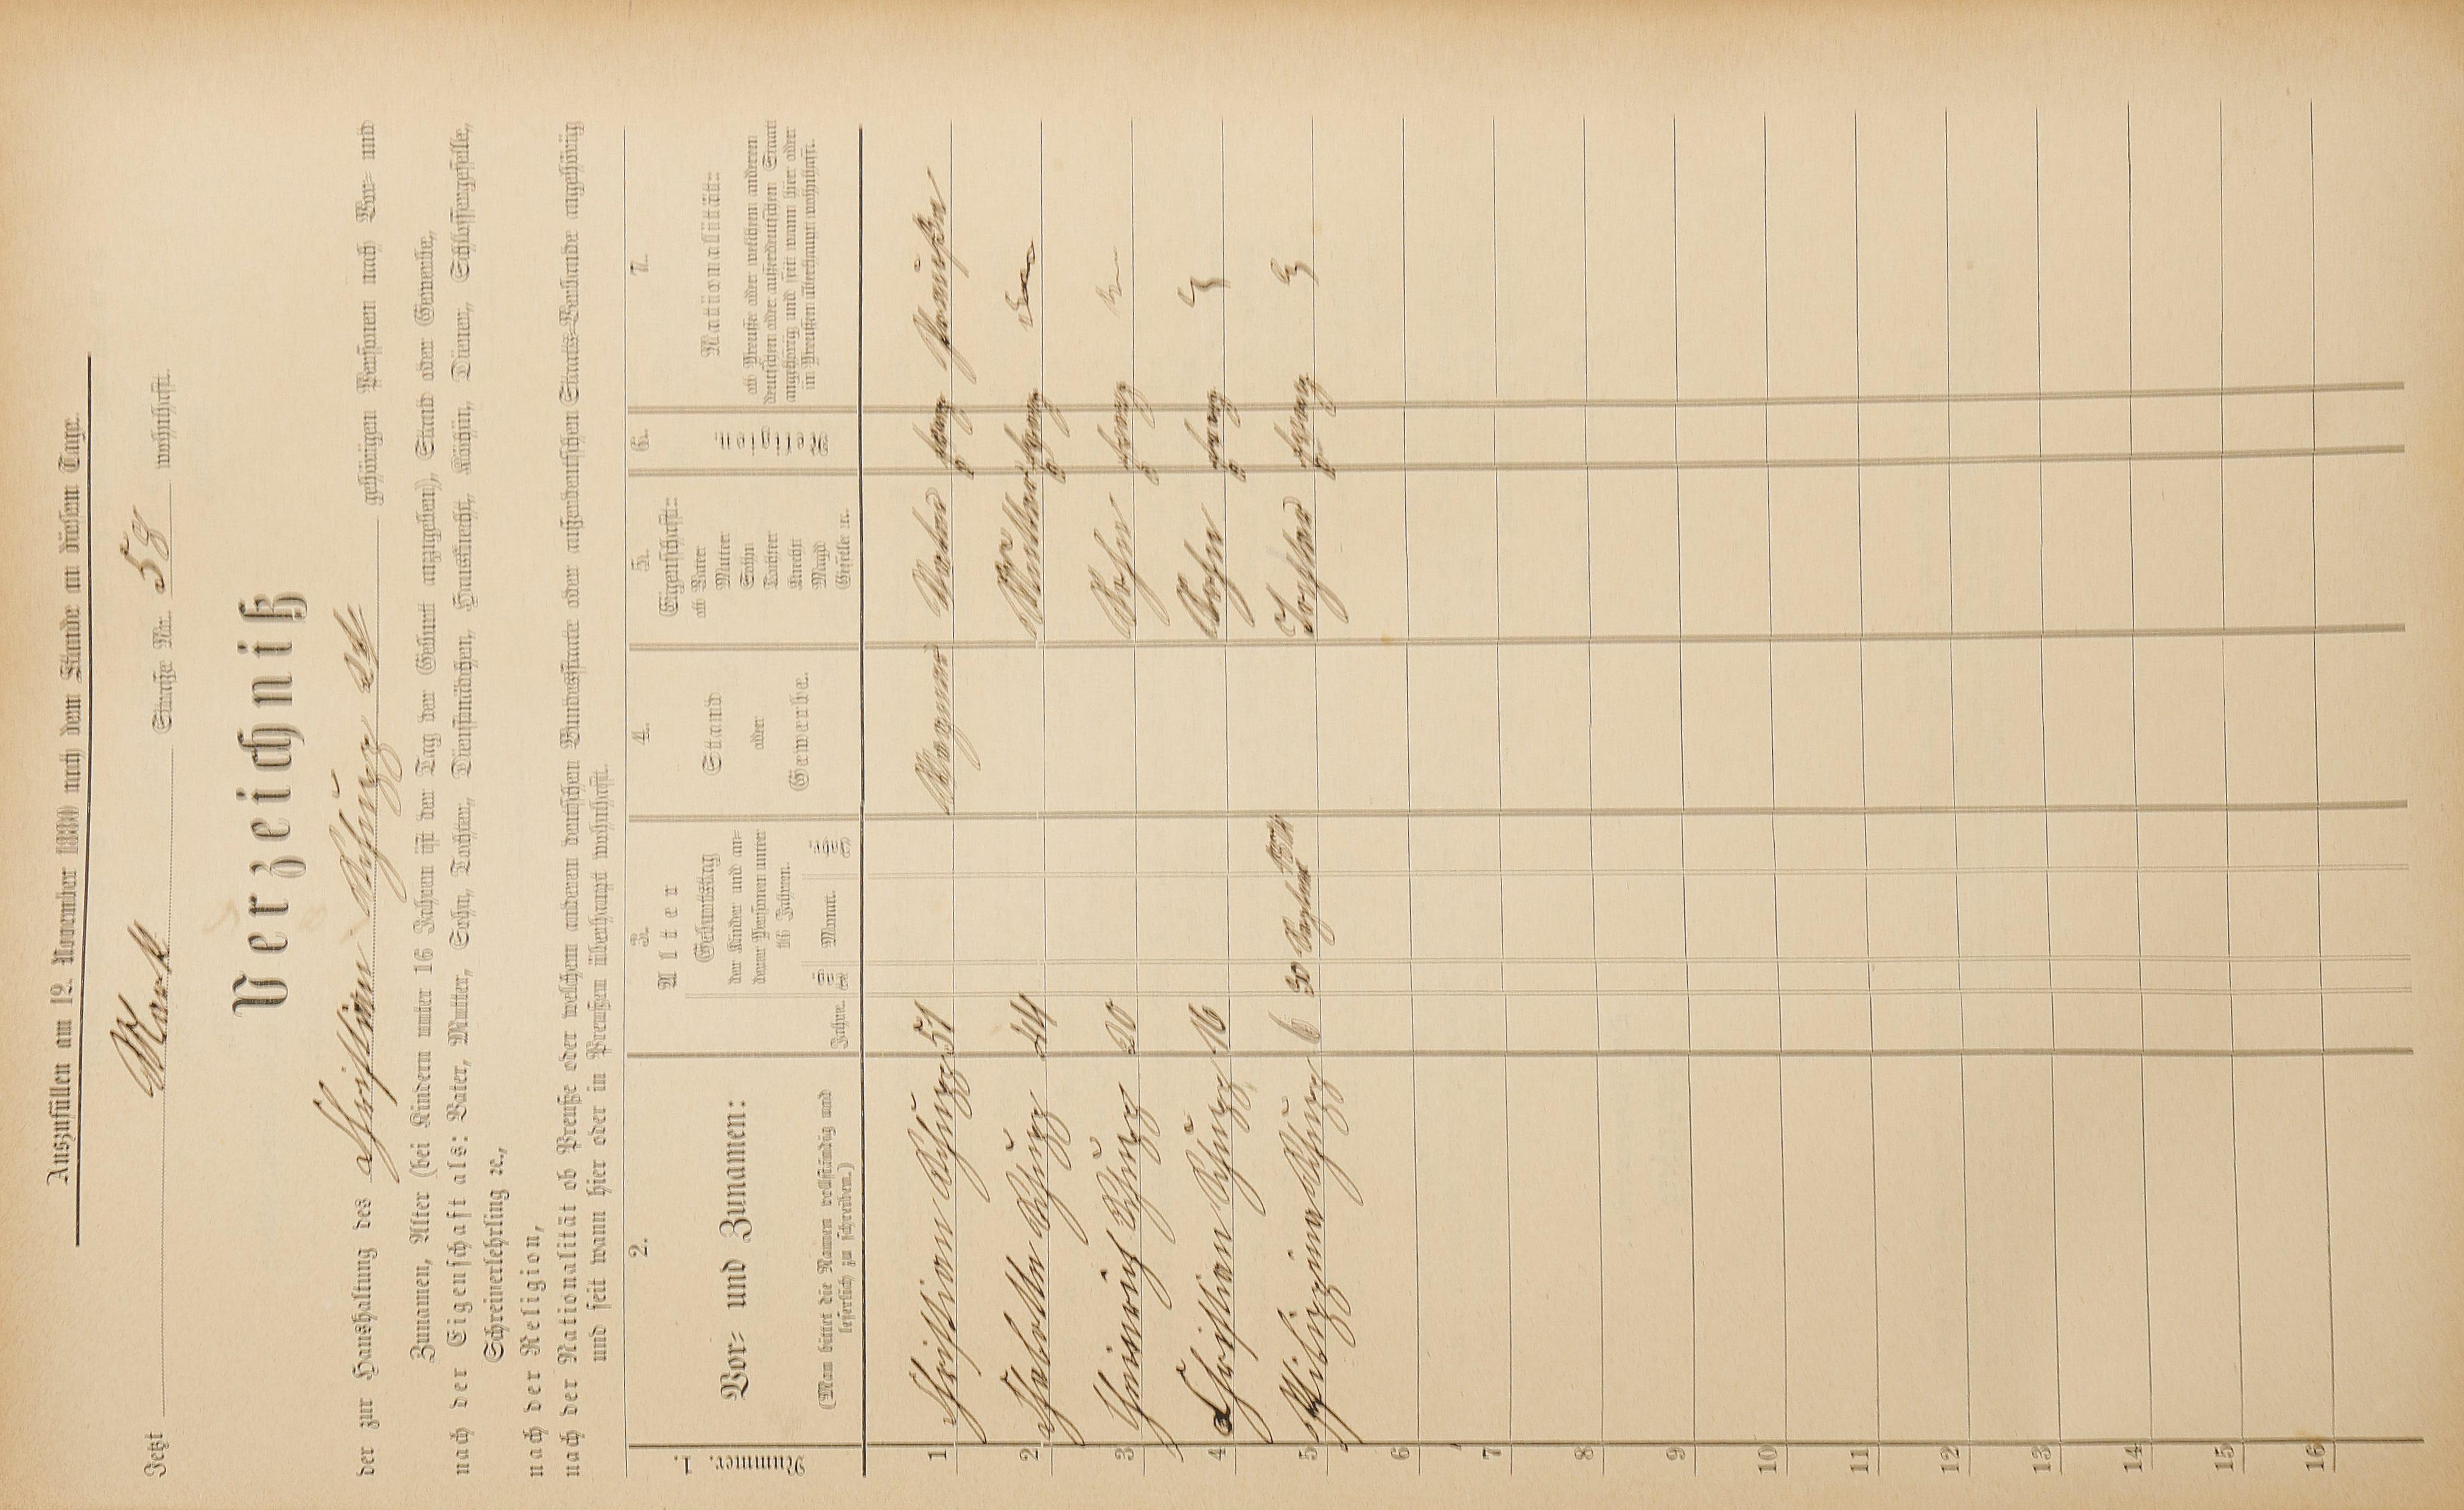 Auszufüllen am 12. November 1880 nach dem Stande an diesem Tage.
Jetzt Markt Straße Nr. 58 wohnhaft.
Verzeichniß
der zur Haushaltung des Christian Schupp gehörigen Personen nach Vor- und
Zunamen, Alter (bei Kindern unter 16 Jahren ist der Tag der Geburt anzugeben), Stand oder Gewerbe,
nach der Eigenschaft als: Vater, Mutter, Sohn, Tochter, Dienstmädchen, Hausknecht, Köchin, Diener, Schlossergeselle,
Schreinerlehrling ꝛc.,
nach der Religion,
nach der Nationalität ob Preuße oder welchem anderen deutschen Bundesstaate oder außerdeutschen Staats-Verbande angehörig
und seit wann hier oder in Preußen überhaupt wohnhaft.
1. Nummer.
2. Vor- und Zunamen:
(Man bittet die Namen vollständig und
leserlich zu schreiben.)
3. Alter
Jahre.
Geburtstag
der Kinder und an-
derer Personen unter
16 Jahren.
Tag Monat. Jahr
4. Stand
oder
Gewerbe.
5. Eigenschaft:
ob Vater
Mutter
Sohn
Tochter
Knecht
Magd
Geselle ꝛc.
6. Religion
7. Nationalität:
ob Preuße oder welchem anderen
deutschen oder außerdeutschen Staat
angehörig und seit wann hier oder
in Preußen überhaupt wohnhaft.
1 Christian Schupp 51 Wagner Vater evang Preuße
2 Schupp 44 Mutter evang
3 Heinrich Schupp 20 Sohn evang
4 Christian Schupp 16 Sohn evang
5 Schupp 6 30 1874 Tochter evang
6
7
8
9
10
11
12
13
14
15
16